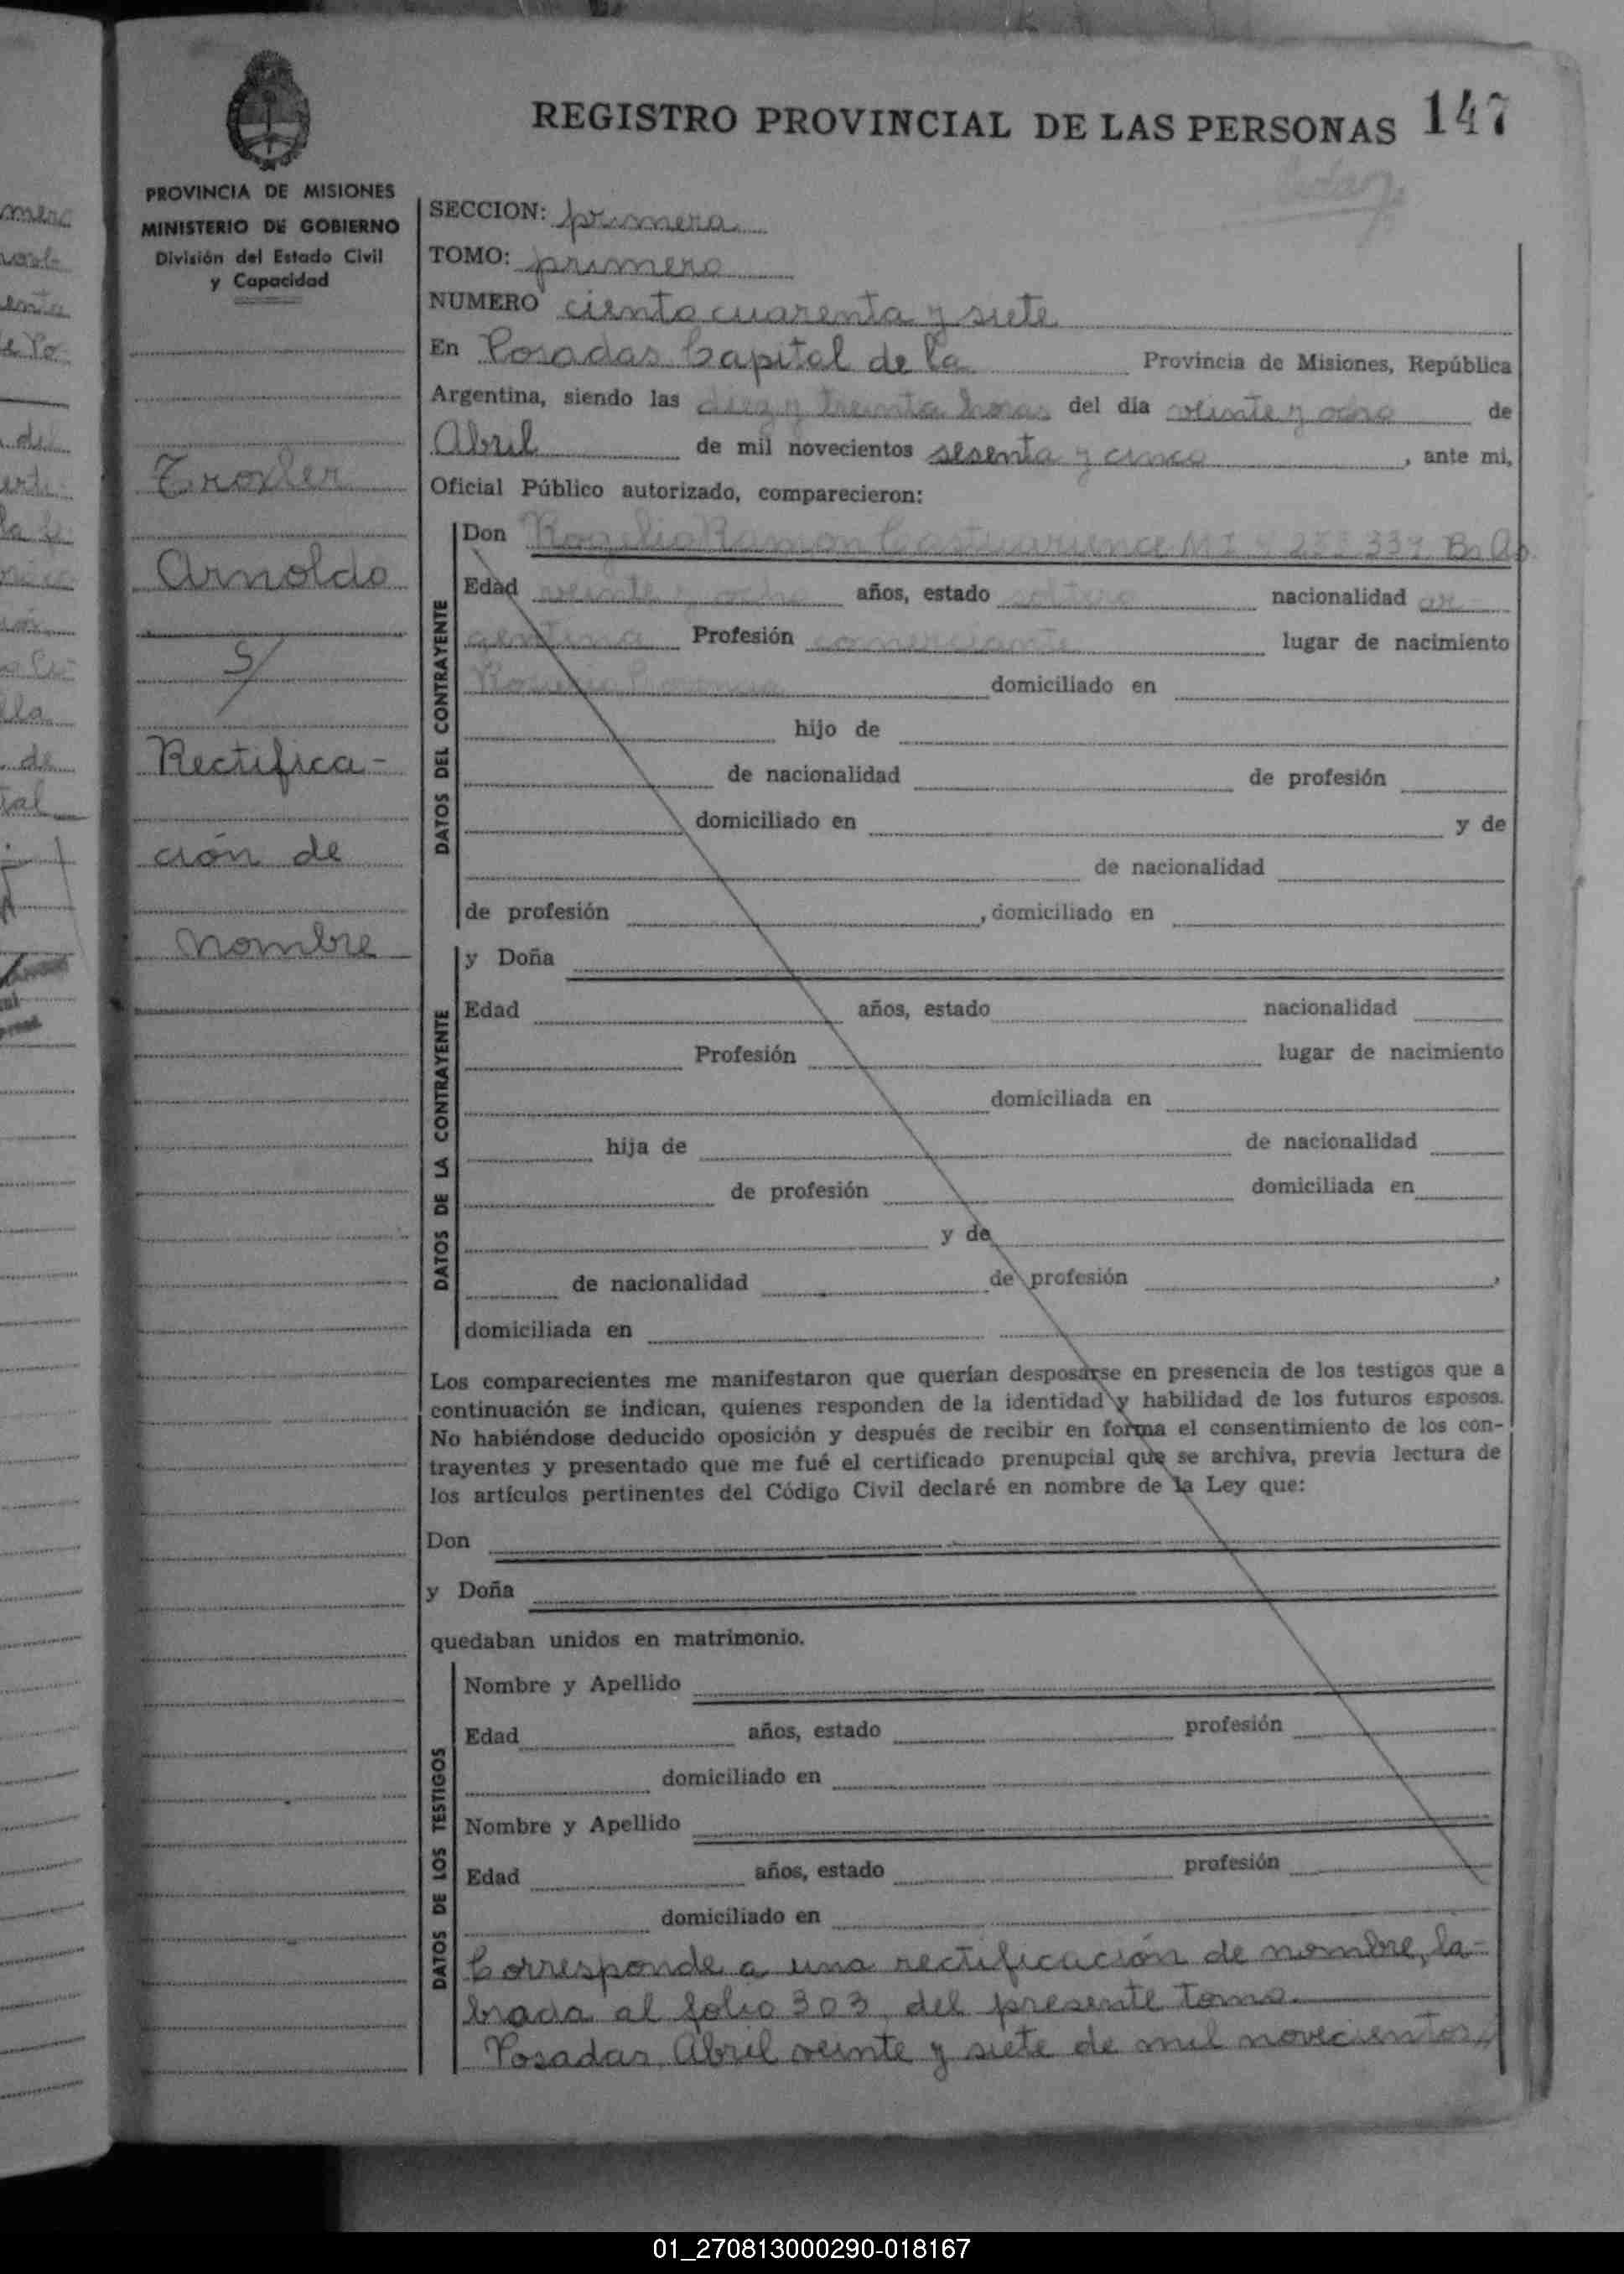 REGISTRO PROVINCIAL DE LAS PERSONAS 147
PROVINCIA DE MISIONES
MINISTERIO DE GOBIERNO
División del Estado Civil
y Capacidad
Troxler
Arnoldo
s/
Rectifica-
ción de
nombre
SECCION: primera
TOMO: primero
NUMERO ciento cuarenta y siete
En Posadas Capital de la Provincia de Misiones, República
Argentina, siendo las diez y treinta horas del día veinte y ocho de
Abril de mil novecientos sesenta y cinco, ante mi,
Oficial Público autorizado, comparecieron:
DATOS DEL CONTRAYENTE
Don Rogelio Ramón
Edad veinte y ocho años, estado soltero nacionalidad ar-
gentina Profesión comerciante lugar de nacimiento
domiciliado en
hijo de
de nacionalidad de profesión
domiciliado en y de
de nacionalidad
de profesión , domiciliado en
DATOS DE LA CONTRAYENTE
y Doña
Edad años, estado nacionalidad
Profesión lugar de nacimiento
domiciliada en
hija de de nacionalidad
de profesión domiciliada en
y de
de nacionalidad de profesión ,
domiciliada en
Los comparecientes me manifestaron que querían desposarse en presencia de los testigos que a
continuación se indican, quienes responden de la identidad y habilidad de los futuros esposos.
No habiéndose deducido oposición y después de recibir en forma el consentimiento de los con-
trayentes y presentado que me fué el certificado prenupcial que se archiva, previa lectura de
los artículos pertinentes del Código Civil declaré en nombre de la Ley que:
Don
y Doña
quedaban unidos en matrimonio.
DATOS DE LOS TESTIGOS
Nombre y Apellido
Edad años, estado profesión
domiciliado en
Nombre y Apellido
Edad años, estado profesión
domiciliado en
Corresponde a una rectificación de nombre, la-
brada al folio 303 del presente tomo.
Posadas, Abril veinte y siete de mil novecientos
01_270813000290-018167